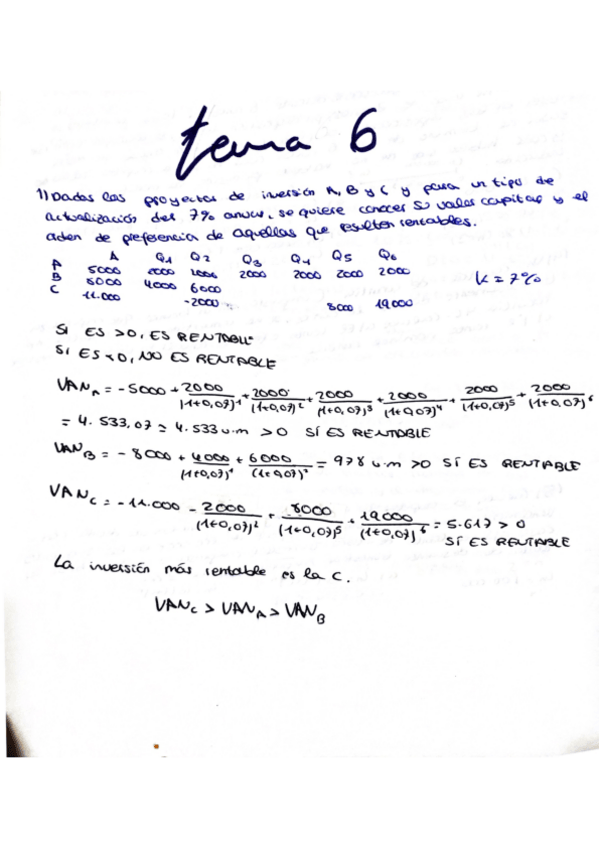 tema 6
1) Dados los proyectos de inversión A, B y C y para un tipo de
actualización del 7% anual, se quiere conocer su valor capital y el
orden de preferencia de aquellas que resulten rentables.
A Q1 Q2 Q3 Q4 Q5 Q6
A 5000 2000 2000 2000 2000 2000 2000
B 8000 4000 6000 K = 7%
C 11.000 -2000 8000 19000
SI ES >0, ES RENTABLE
SI ES <0, NO ES RENTABLE
VAN_A = -5000 + 2000/(1+0,07)^1 + 2000/(1+0,07)^2 + 2000/(1+0,07)^3 + 2000/(1+0,07)^4 + 2000/(1+0,07)^5 + 2000/(1+0,07)^6
= 4.533,07 = 4.533 u.m > 0 SÍ ES RENTABLE
VAN_B = -8000 + 4000/(1+0,07)^1 + 6000/(1+0,07)^2 = 978 u.m >0 SÍ ES RENTABLE
VAN_C = -11.000 - 2000/(1+0,07)^2 + 8000/(1+0,07)^5 + 19000/(1+0,07)^6 = 5.617 > 0
SÍ ES RENTABLE
La inversión más rentable es la C.
VAN_C > VAN_A > VAN_B